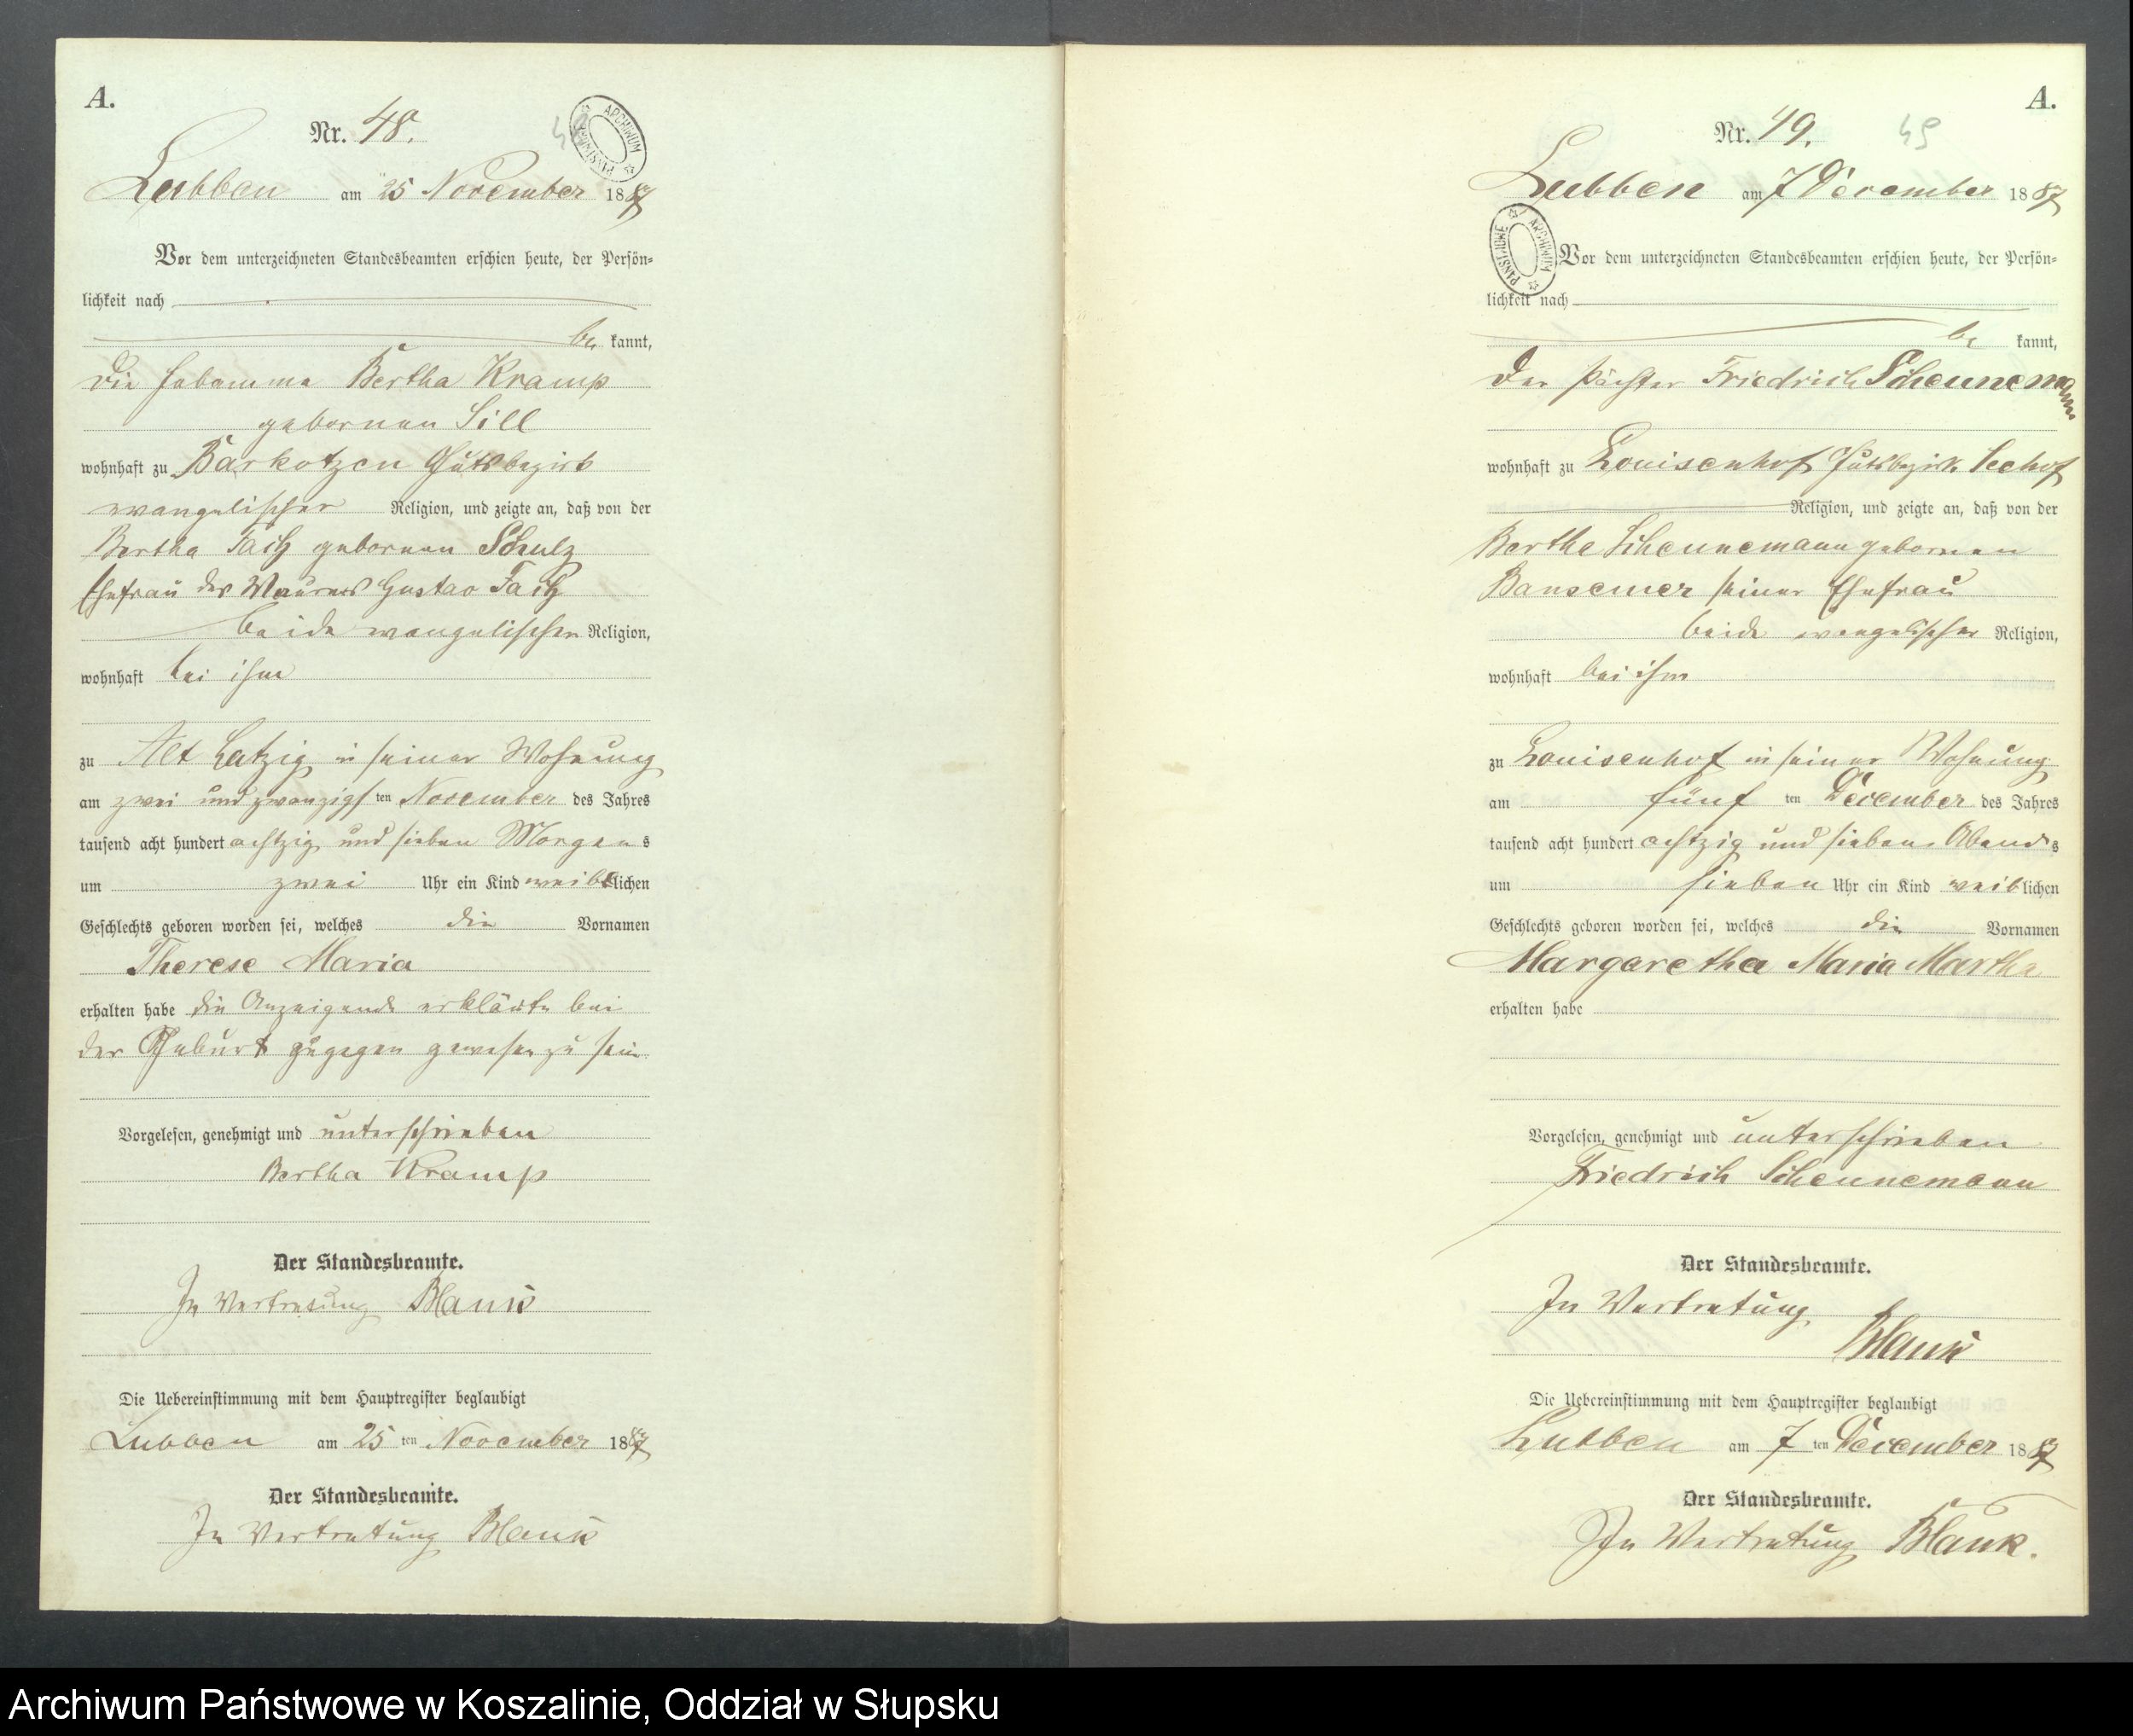 A.
Nr. 48.
ARCHIWUM PAŃSTWOWE
Lubben am 25 November 1887
Vor dem unterzeichneten Standesbeamten erschien heute, der Persön-
lichkeit nach
be kannt,
die Hebamme Bertha Kramp
geborenen Sill
wohnhaft zu Barkotzen Gutsbezirk
evangelischer Religion, und zeigte an, daß von der
Bertha geborenen Schulz
Ehefrau des Maurers Gustav
beide evangelischer Religion,
wohnhaft bei ihm
zu Alt Latzig in seiner Wohnung
am zwei und zwanzigsten November des Jahres
tausend acht hundert achtzig und sieben Morgens
um zwei Uhr ein Kind weiblichen
Geschlechts geboren worden sei, welches die Vornamen
Therese Maria
erhalten habe die Anzeigende erklärte bei
der Geburt zugegen gewesen zu sein
Vorgelesen, genehmigt und unterschrieben
Bertha Kramp
Der Standesbeamte.
In Vertretung Blank
Die Uebereinstimmung mit dem Hauptregister beglaubigt
Lubben am 25 ten November 1887
Der Standesbeamte.
In Vertretung Blank
A.
Nr. 49.
49
Lubben am 7 December 1887
ARCHIWUM PAŃSTWOWE
Vor dem unterzeichneten Standesbeamten erschien heute, der Persön-
lichkeit nach
be kannt,
der Pächter Friedrich Scheunemann
wohnhaft zu Louisenhof Gutsbezirk Seehof
Religion, und zeigte an, daß von der
Bertha Scheunemann geborenen
Bansemer seiner Ehefrau
beide evangelischer Religion,
wohnhaft bei ihm
zu Louisenhof in seiner Wohnung
am fünf ten December des Jahres
tausend acht hundert achtzig und sieben Abends
um sieben Uhr ein Kind weiblichen
Geschlechts geboren worden sei, welches die Vornamen
Margaretha Maria Martha
erhalten habe
Vorgelesen, genehmigt und unterschrieben
Friedrich Scheunemann
Der Standesbeamte.
In Vertretung
Blank
Die Uebereinstimmung mit dem Hauptregister beglaubigt
Lubben am 7 ten December 1887
Der Standesbeamte.
In Vertretung Blank.
Archiwum Państwowe w Koszalinie, Oddział w Słupsku